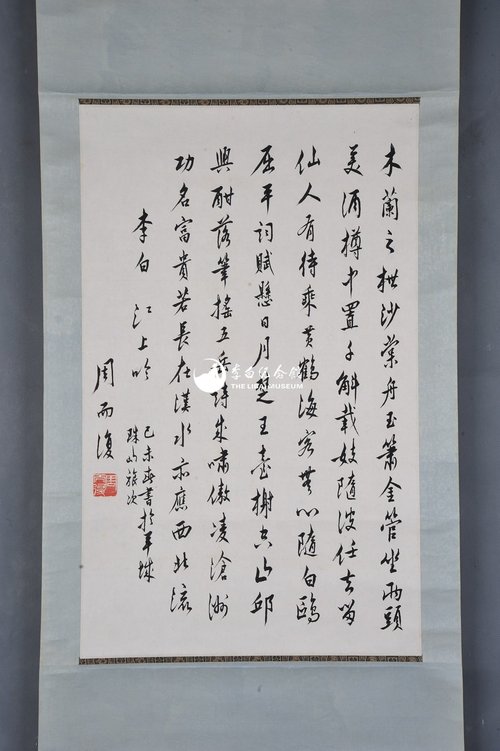 木蘭之枻沙棠舟玉簫金管坐兩頭
美酒樽中置千斛載妓隨波任去留
仙人有待乘黃鶴海客無心隨白鷗
屈平詞賦懸日月楚王臺榭空山邱
興酣落筆搖五岳詩成嘯傲凌滄洲
功名富貴若長在漢水亦應西北流
李白 江上吟
己未春書於城
旅次
周而復
李白纪念馆
THE LIBAI MUSEUM